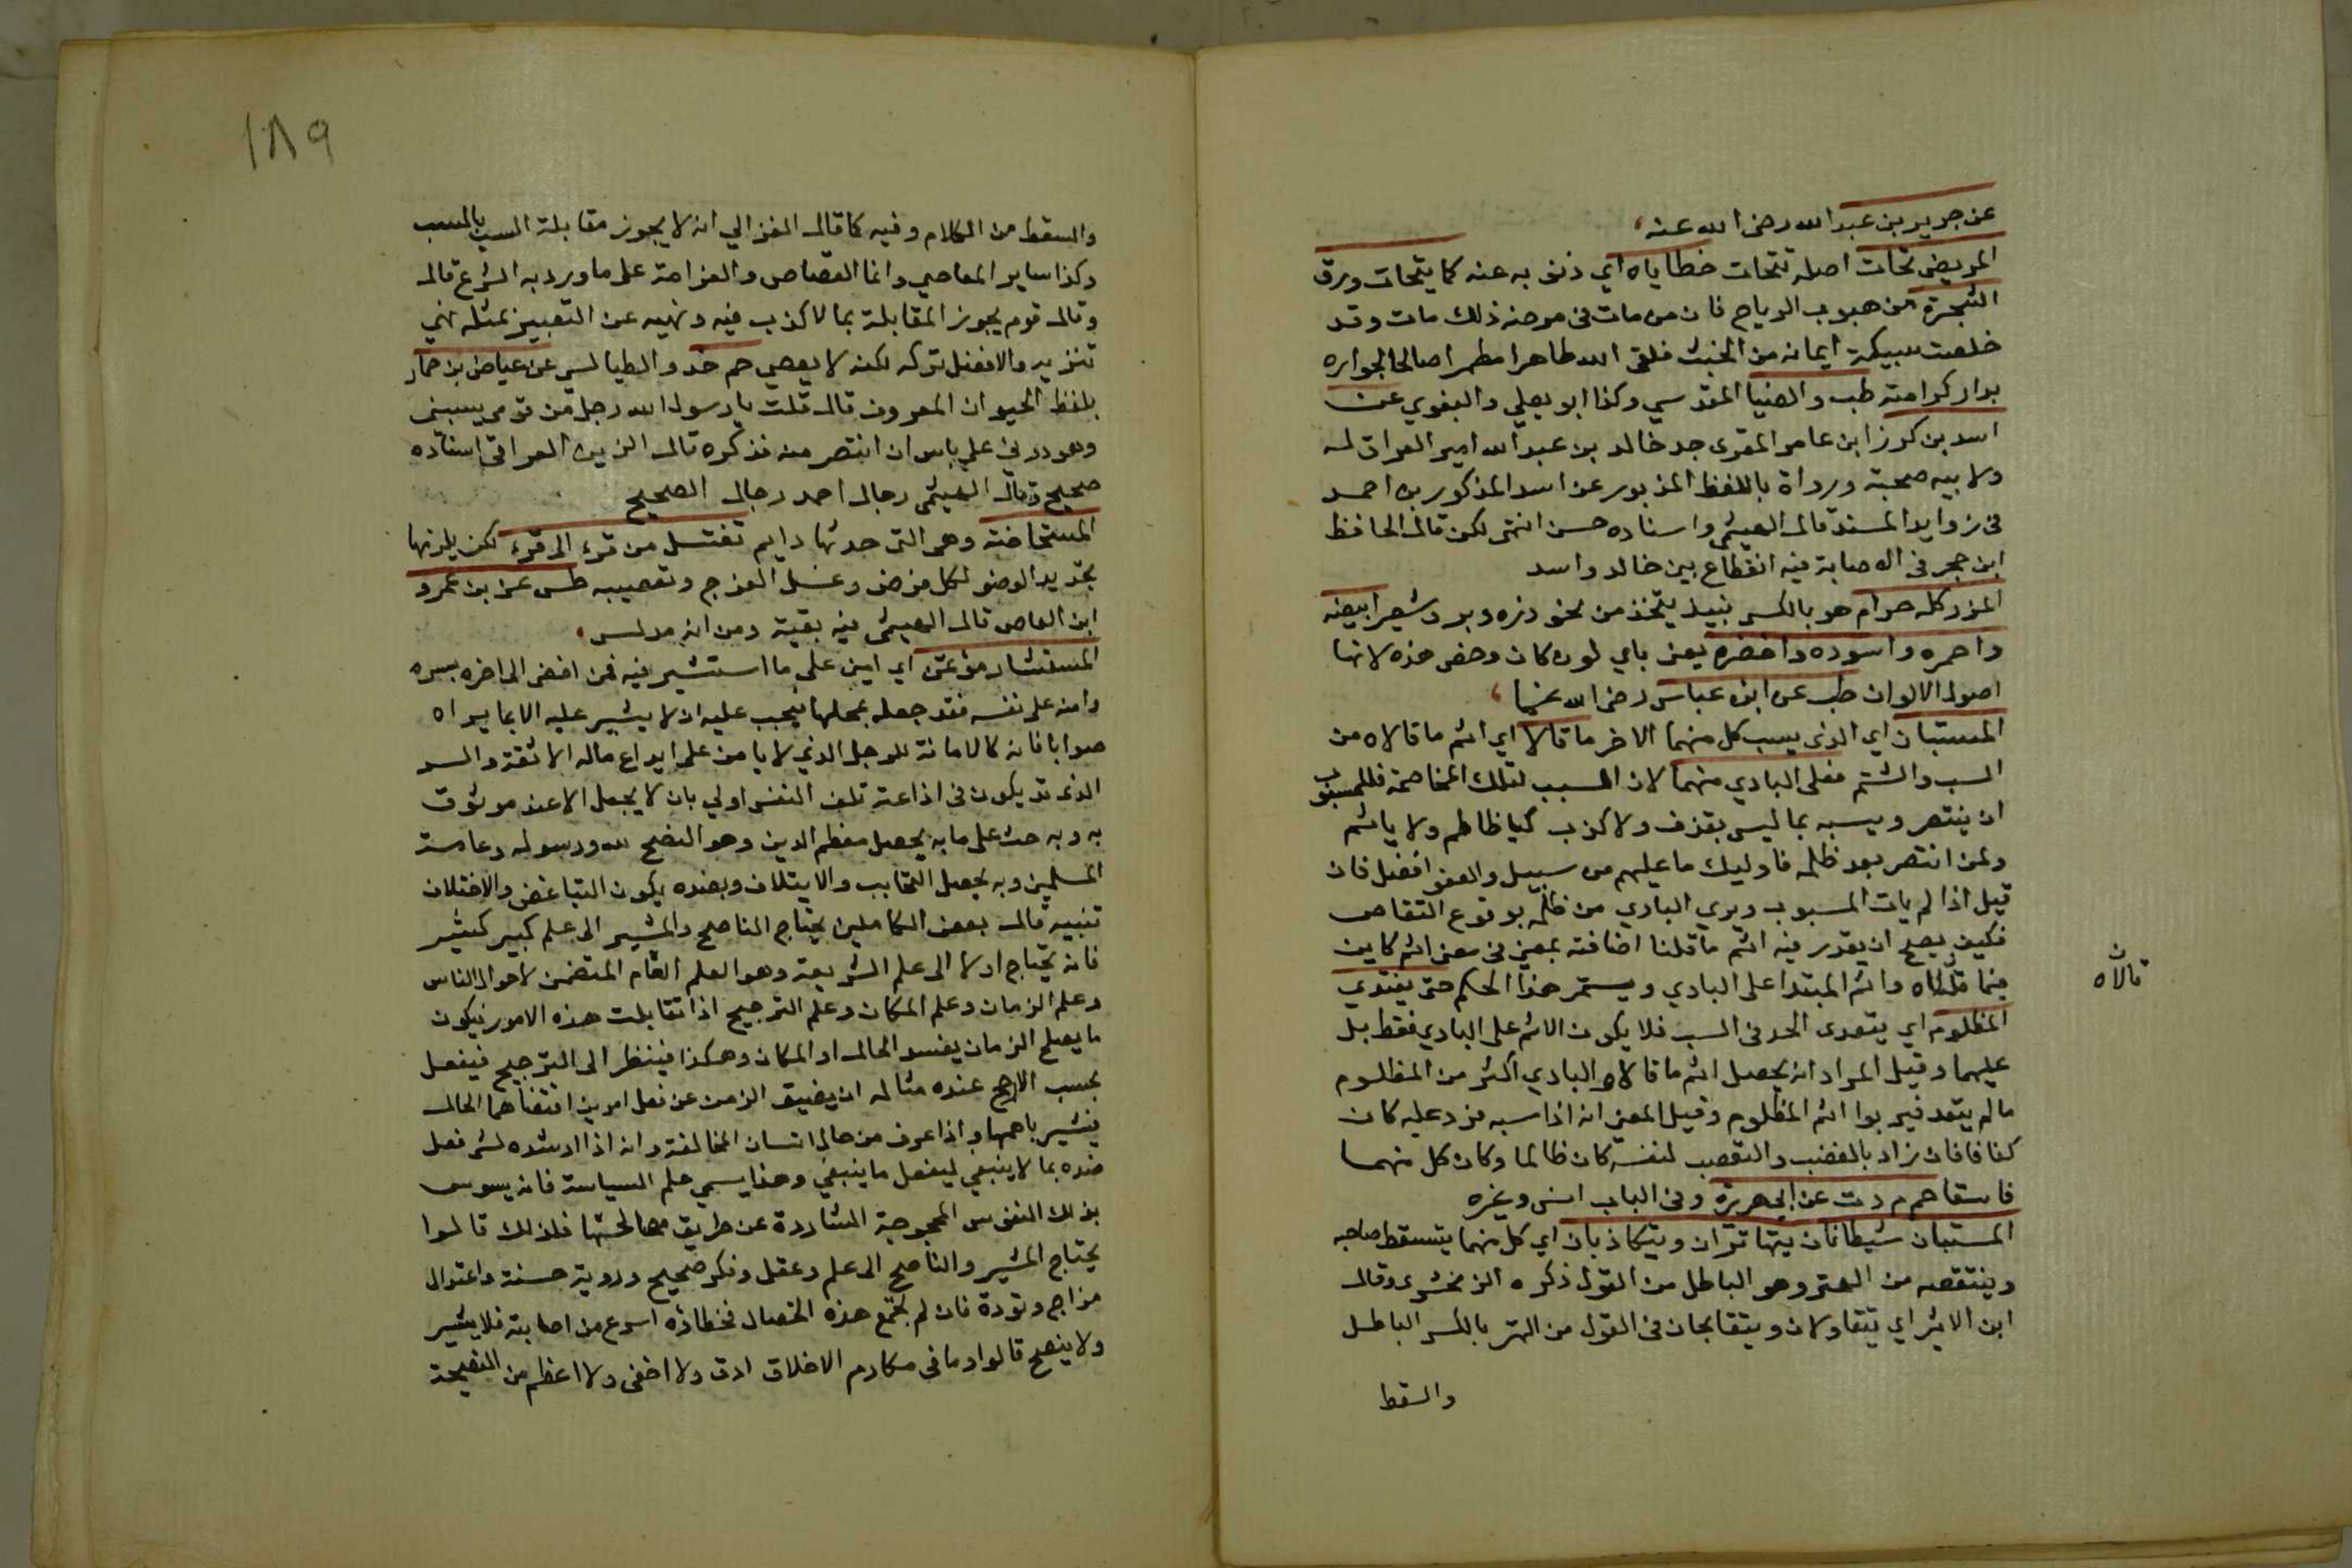 عن جرير بن عبد الله رضى الله عنه
المريض تحات اصله تتحات خطاياه اي ذنوبه عنه كما يتحات ورق
الشجرة من هبوب الرياح فان من مات فى مرضه ذلك مات وقد
خلصت سبيكة ايمانه من الخبث فلقى الله طاهرا مطهرا صالحا لجواره
بدار كرامته طب والضيا المقدسي وكذا ابو يعلي والبغوي عن
اسد بن كرز ابن عامر القسرى جد خالد بن عبد الله امير العراق له
ولابيه صحبة ورواة باللفظ المزبور عن اسد المذكور بن احمد
فى زوايد المسند قال الهيثمى واسناده حسن انتهى لكن قال الحافظ
ابن حجر فى الاصابة فيه انقطاع بين خالد واسد
المزر كله حرام هو بالكسر نبيذ يتخذ من نحو ذره وبر وشعير ابيضه
واحمره واسوده واخضره يعنى باي لون كان وخص هذه لانها
اصول الالوان طب عن ابن عباس رضى الله عنهما
المستبان اي الذى يسب كل منهما الاخر ما قالا اي اثم ما قالاه من
السب والشتم فعلى البادي منهما لان السبب لتلك المخاصمة فللمسبوب
ان ينتصر ويسبه بما ليس بقذف ولا كذب كيا ظالم ولا ياثم
ولمن انتصر بعد ظلمه فاوليك ما عليهم من سبيل والعفو افضل فان
قيل اذا لم يات المسبوب وبري البادي من ظلمه بوقوع التقاص
فكيف يصح ان يقدر فيه اثم ما قلنا اضافته بمعنى فى يعنى اثم كاين
فيما قالاه واثم المبتدا على البادي ويستمر هذا الحكم حتى يعتدي
المظلوم اي يتعدى الحد فى السب فلا يكون الاثم على البادي فقط بل
عليهما وقيل المراد انه يحصل اثم ما قالاه والبادي اكثر من المظلوم
ما لم يتعد فيربوا اثم المظلوم وقيل المعنى انه اذا سبه فرد عليه كان
كفافا فان زاد بالغضب والتعصب لنفسه كان ظالما وكان كل منهما
فاسقا حم م د ت عن ابي هريرة وفى الباب انس وغيره
المستبان شيطانان يتهاتران ويتكاذبان اي كل منهما يتسقط صاحبه
وينتقصه من الهتر وهو الباطل من القول ذكره الزمخشرى وقال
ابن الاثير اي يتقاولان ويتقابحان فى القول من الهتر بالكسر الباطل
والسقط
ن
قالاه
١٨٩
والسقط من الكلام وفيه كما قال الغزالي انه لا يجوز مقابلة السب بالسب
وكذا ساير المعاصي وانما القصاص والغرامة على ما ورد به الشرع قال
وقال قوم يجوز المقابلة بما لا كذب فيه ونهيه عن التعبير بمثله نهي
تنزيه والافضل تركه لكنه لا يعصي حم خد والطيالسى عن عياض بن حمار
بلفظ الحيوان المعروف قال قلت يا رسول الله رجل من قومى يسبنى
وهو دونى على باس ان انتصر منه فذكره قال الزين العراقى اسناده
صحيح وقال الهيثمى رجال احمد رجال الصحيح
المستحاضة وهى التى حدثها دايم تغتسل من قرء الى قرء لكن يلزمها
تجديد الوضو لكل فرض وغسل الفرج وتعصيبه طس عن بن عمرو
ابن العاص قال الهيثمى فيه بقية ومن انه مدلس
المستشار مؤتمن اي امين على ما استشير فيه فمن افضى الى اخره بسره
وامنه على نفسه فقد جعله بمحلها فيجب عليه ان لا يشير عليه الا بما يراه
صوابا فانه كالامانة للرجل الذي لا يامن على ايداع ماله الا ثقة والسر
الذى قد يكون فى اذاعته تلف النفس اولي بان لا يجعل الا عند موثوق
به وبه حث على ما به يحصل معظم الدين وهو النصح لله ورسوله وعامة
المسلمين وبه يحصل التحابب والايتلاف وبضده يكون التباغض والاختلاف
تنبيه قال بعض الكاملين يحتاج الناصح والمشير الى علم كبير كثير
فانه يحتاج اولا الى علم الشريعة وهو العلم العام المتضمن لاحوال الناس
وعلم الزمان وعلم المكان وعلم الترجيح اذا تقابلت هذه الامور فيكون
ما يصلح الزمان يفسد الحال او المكان وهكذا فينظر الى الترجيح فيفعل
بحسب الارجح عنده مثاله ان يضيق الزمن عن فعل امرين اقتضاهما الحال
فيشير باهمها واذا عرف من حال انسان المخالفة وانه اذا ارشده لشى فعل
ضده بما لا ينبغي ليفعل ما ينبغي وهذا يسمي علم السياسة فانه يسوس
بذلك النفوس الجموحة الشاردة عن طريق مصالحها فلذلك قالوا
يحتاج المشير والناصح الى علم وعقل وفكر صحيح وروية حسنة واعتدال
مزاج وتودة فان لم تجتمع هذه الخصال فخطاؤه اسرع من اصابته فلا يشير
ولا ينصح قالوا وما فى مكارم الاخلاق ادق ولا اخفى ولا اعظم من النصيحة